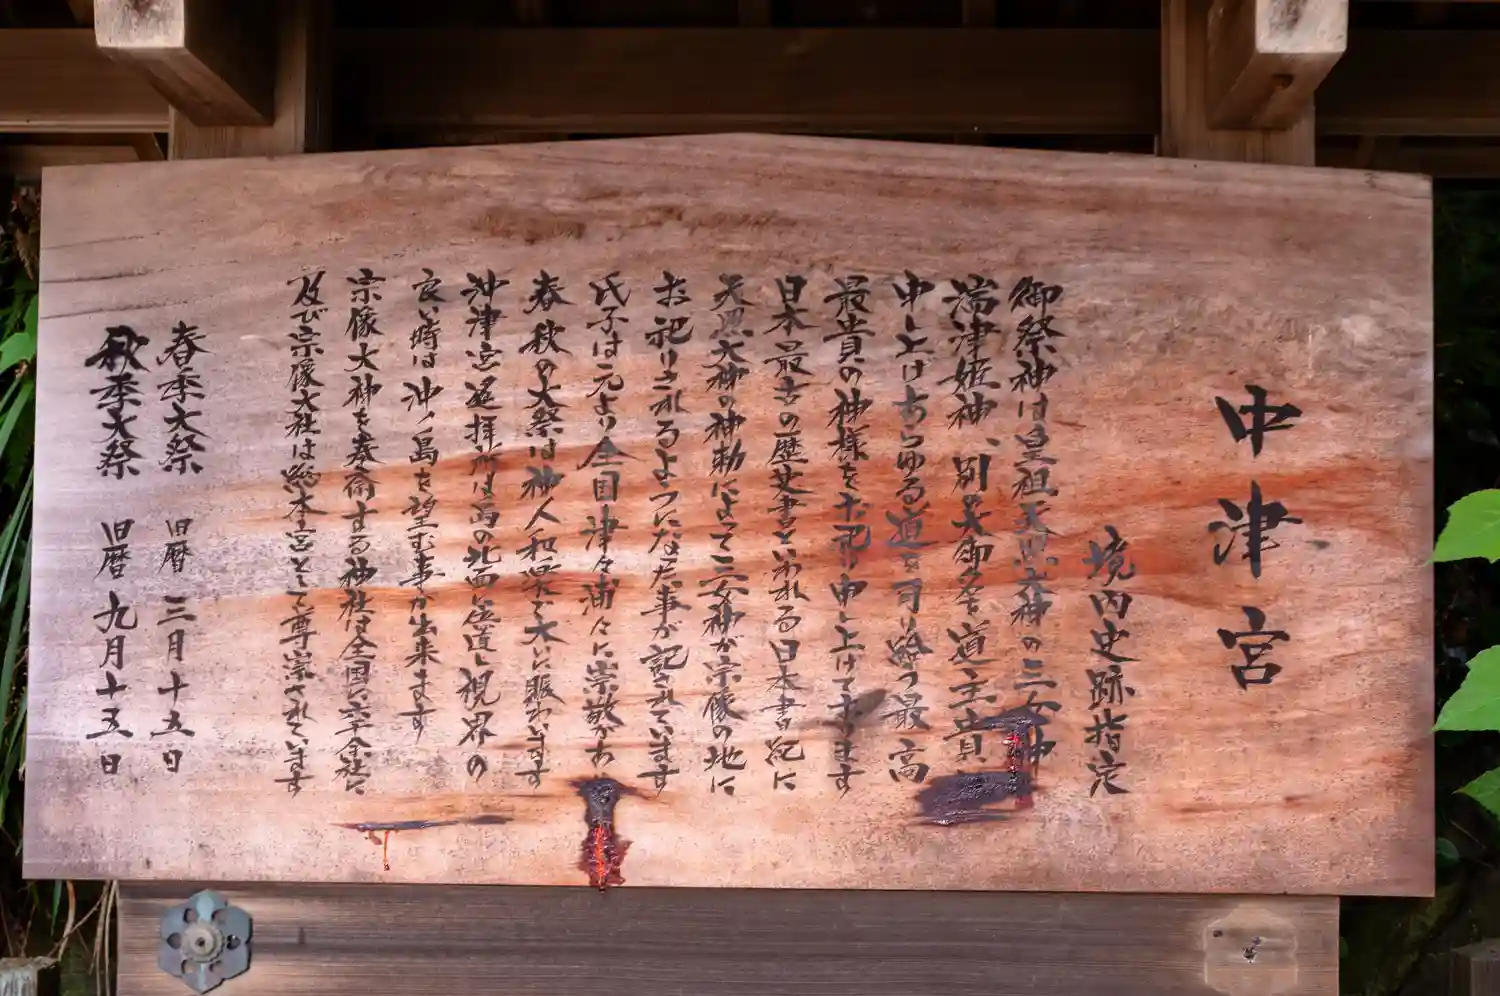 中津宮
境内史跡指定
御祭神は皇祖天照大神の三女神
湍津姫神、別天御名を道主貴
申上げあらゆる道を司り給う最高
最貴の神様をお祀り申し上げております
日本最古の歴史書といわれる日本書記に
天照大神の神勅によって三女神が宗像の地に
お祀りされるようになった事が記されています
氏子は元より全国津々浦々に崇敬があ
春秋の大祭は神人和楽で大いに賑わいます
沖津宮遥拝所は島の北面に位置し視界の
良い時は沖ノ島を望む事が出来ます
宗像大神を奉斎する神社は全国に六千余社に
及び宗像大社は総本宮として尊崇されています
春季大祭 旧暦 三月十五日
秋季大祭 旧暦 九月十五日